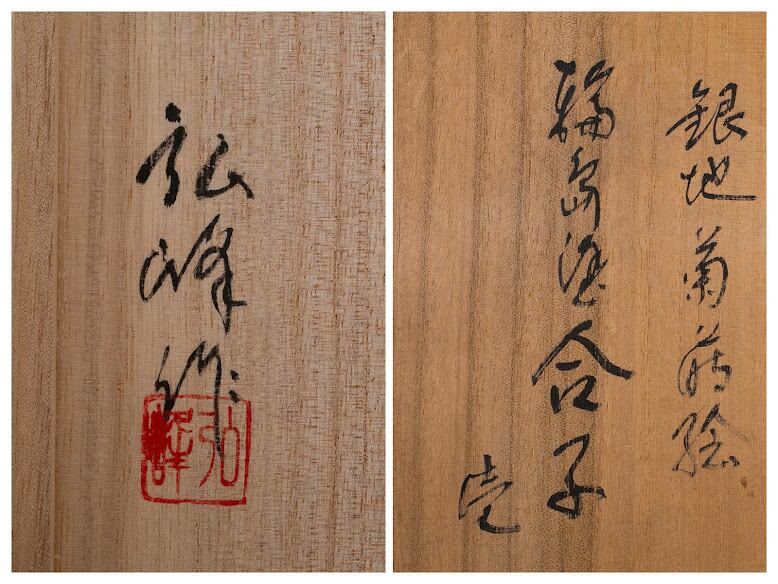 弘峰作
弘峰
銀地菊蒔絵
輪島塗合子
壱